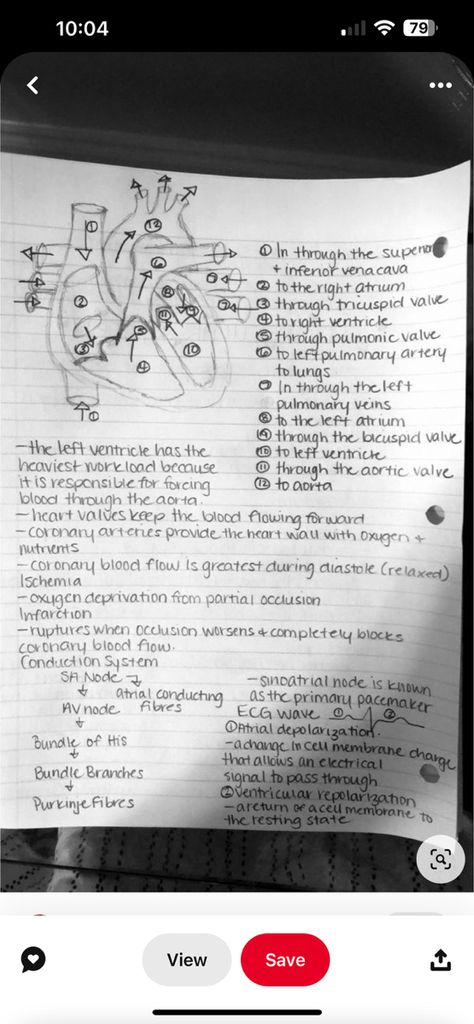 10:04
79
① In through the superior
+ inferior vena cava
② to the right atrium
③ through tricuspid valve
④ to right ventricle
⑤ through pulmonic valve
⑥ to left pulmonary artery
to lungs
⑦ In through the left
pulmonary veins
⑧ to the left atrium
⑨ through the bicuspid valve
⑩ to left ventricle
⑪ through the aortic valve
⑫ to aorta
-the left ventricle has the
heaviest workload because
it is responsible for forcing
blood through the aorta.
-heart valves keep the blood flowing forward
-coronary arteries provide the heart wall with oxygen +
nutrients
-coronary blood flow is greatest during diastole (relaxed)
Ischemia
-oxygen deprivation from partial occlusion
Infarction
-ruptures when occlusion worsens & completely blocks
coronary blood flow.
Conduction System
SA Node
atrial conducting
fibres
AV node
Bundle of His
Bundle Branches
Purkinje Fibres
-sinoatrial node is known
as the primary pacemaker
ECG wave ① ②
① Atrial depolarization.
-a change in cell membrane charge
that allows an electrical
signal to pass through
② ventricular repolarization
-a return of a cell membrane to
the resting state
View
Save